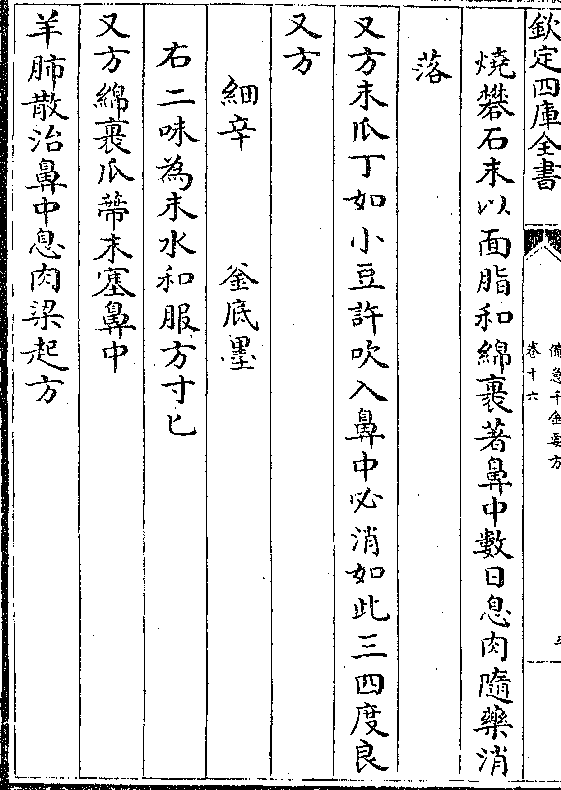 欽定四庫全書
備急千金要方
卷十六
燒礬石末以面脂和綿裹著鼻中數日息肉隨藥消
落
又方末瓜丁如小豆許吹入鼻中必消如此三四度良
又方
細辛　釜底墨
右二味為末水和服方寸匕
又方綿裹瓜蒂末塞鼻中
羊肺散治鼻中息肉梁起方